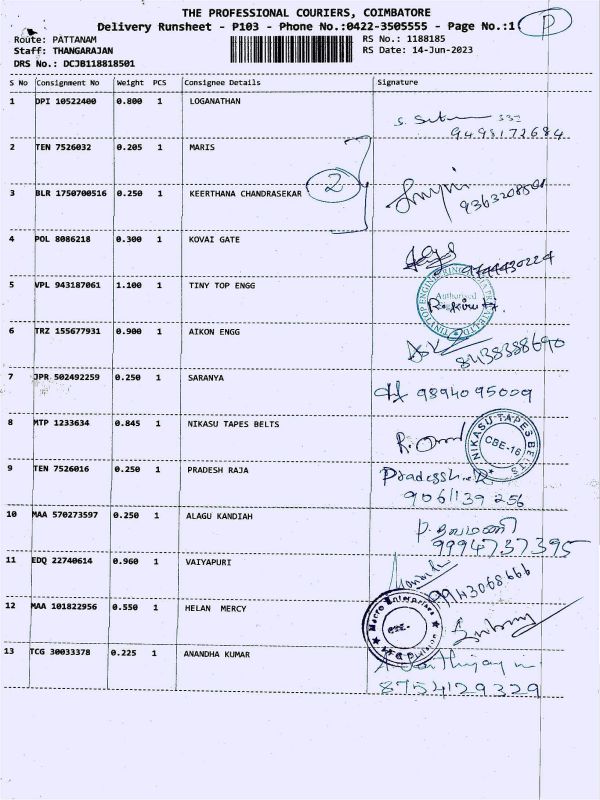 THE PROFESSIONAL COURIERS, COIMBATORE
Delivery Runsheet - P103 - Phone No.:0422-3505555 - Page No.:1
P
Route: PATTANAM
RS No.: 1188185
Staff: THANGARAJAN
RS Date: 14-Jun-2023
DRS No.: DCJB118818501
S No Consignment No Weight PCS Consignee Details Signature
1 DPI 10522400 0.800 1 LOGANATHAN
9498172684
2 TEN 7526032 0.205 1 MARIS
2
3 BLR 1750700516 0.250 1 KEERTHANA CHANDRASEKAR
4 POL 8086218 0.300 1 KOVAI GATE
5 VPL 943187061 1.100 1 TINY TOP ENGG
Authorised
6 TRZ 155677931 0.900 1 AIKON ENGG
8438388690
7 JPR 502492259 0.250 1 SARANYA
9894095009
8 MTP 1233634 0.845 1 NIKASU TAPES BELTS
NIKASU TAPES BELTS
CBE-16
9 TEN 7526016 0.250 1 PRADESH RAJA
9061139256
10 MAA 570273597 0.250 1 ALAGU KANDIAH
9994737395
11 EDQ 22740614 0.960 1 VAIYAPURI
9943068666
12 MAA 101822956 0.550 1 HELAN MERCY
Enterprises
13 TCG 30033378 0.225 1 ANANDHA KUMAR
8754129329